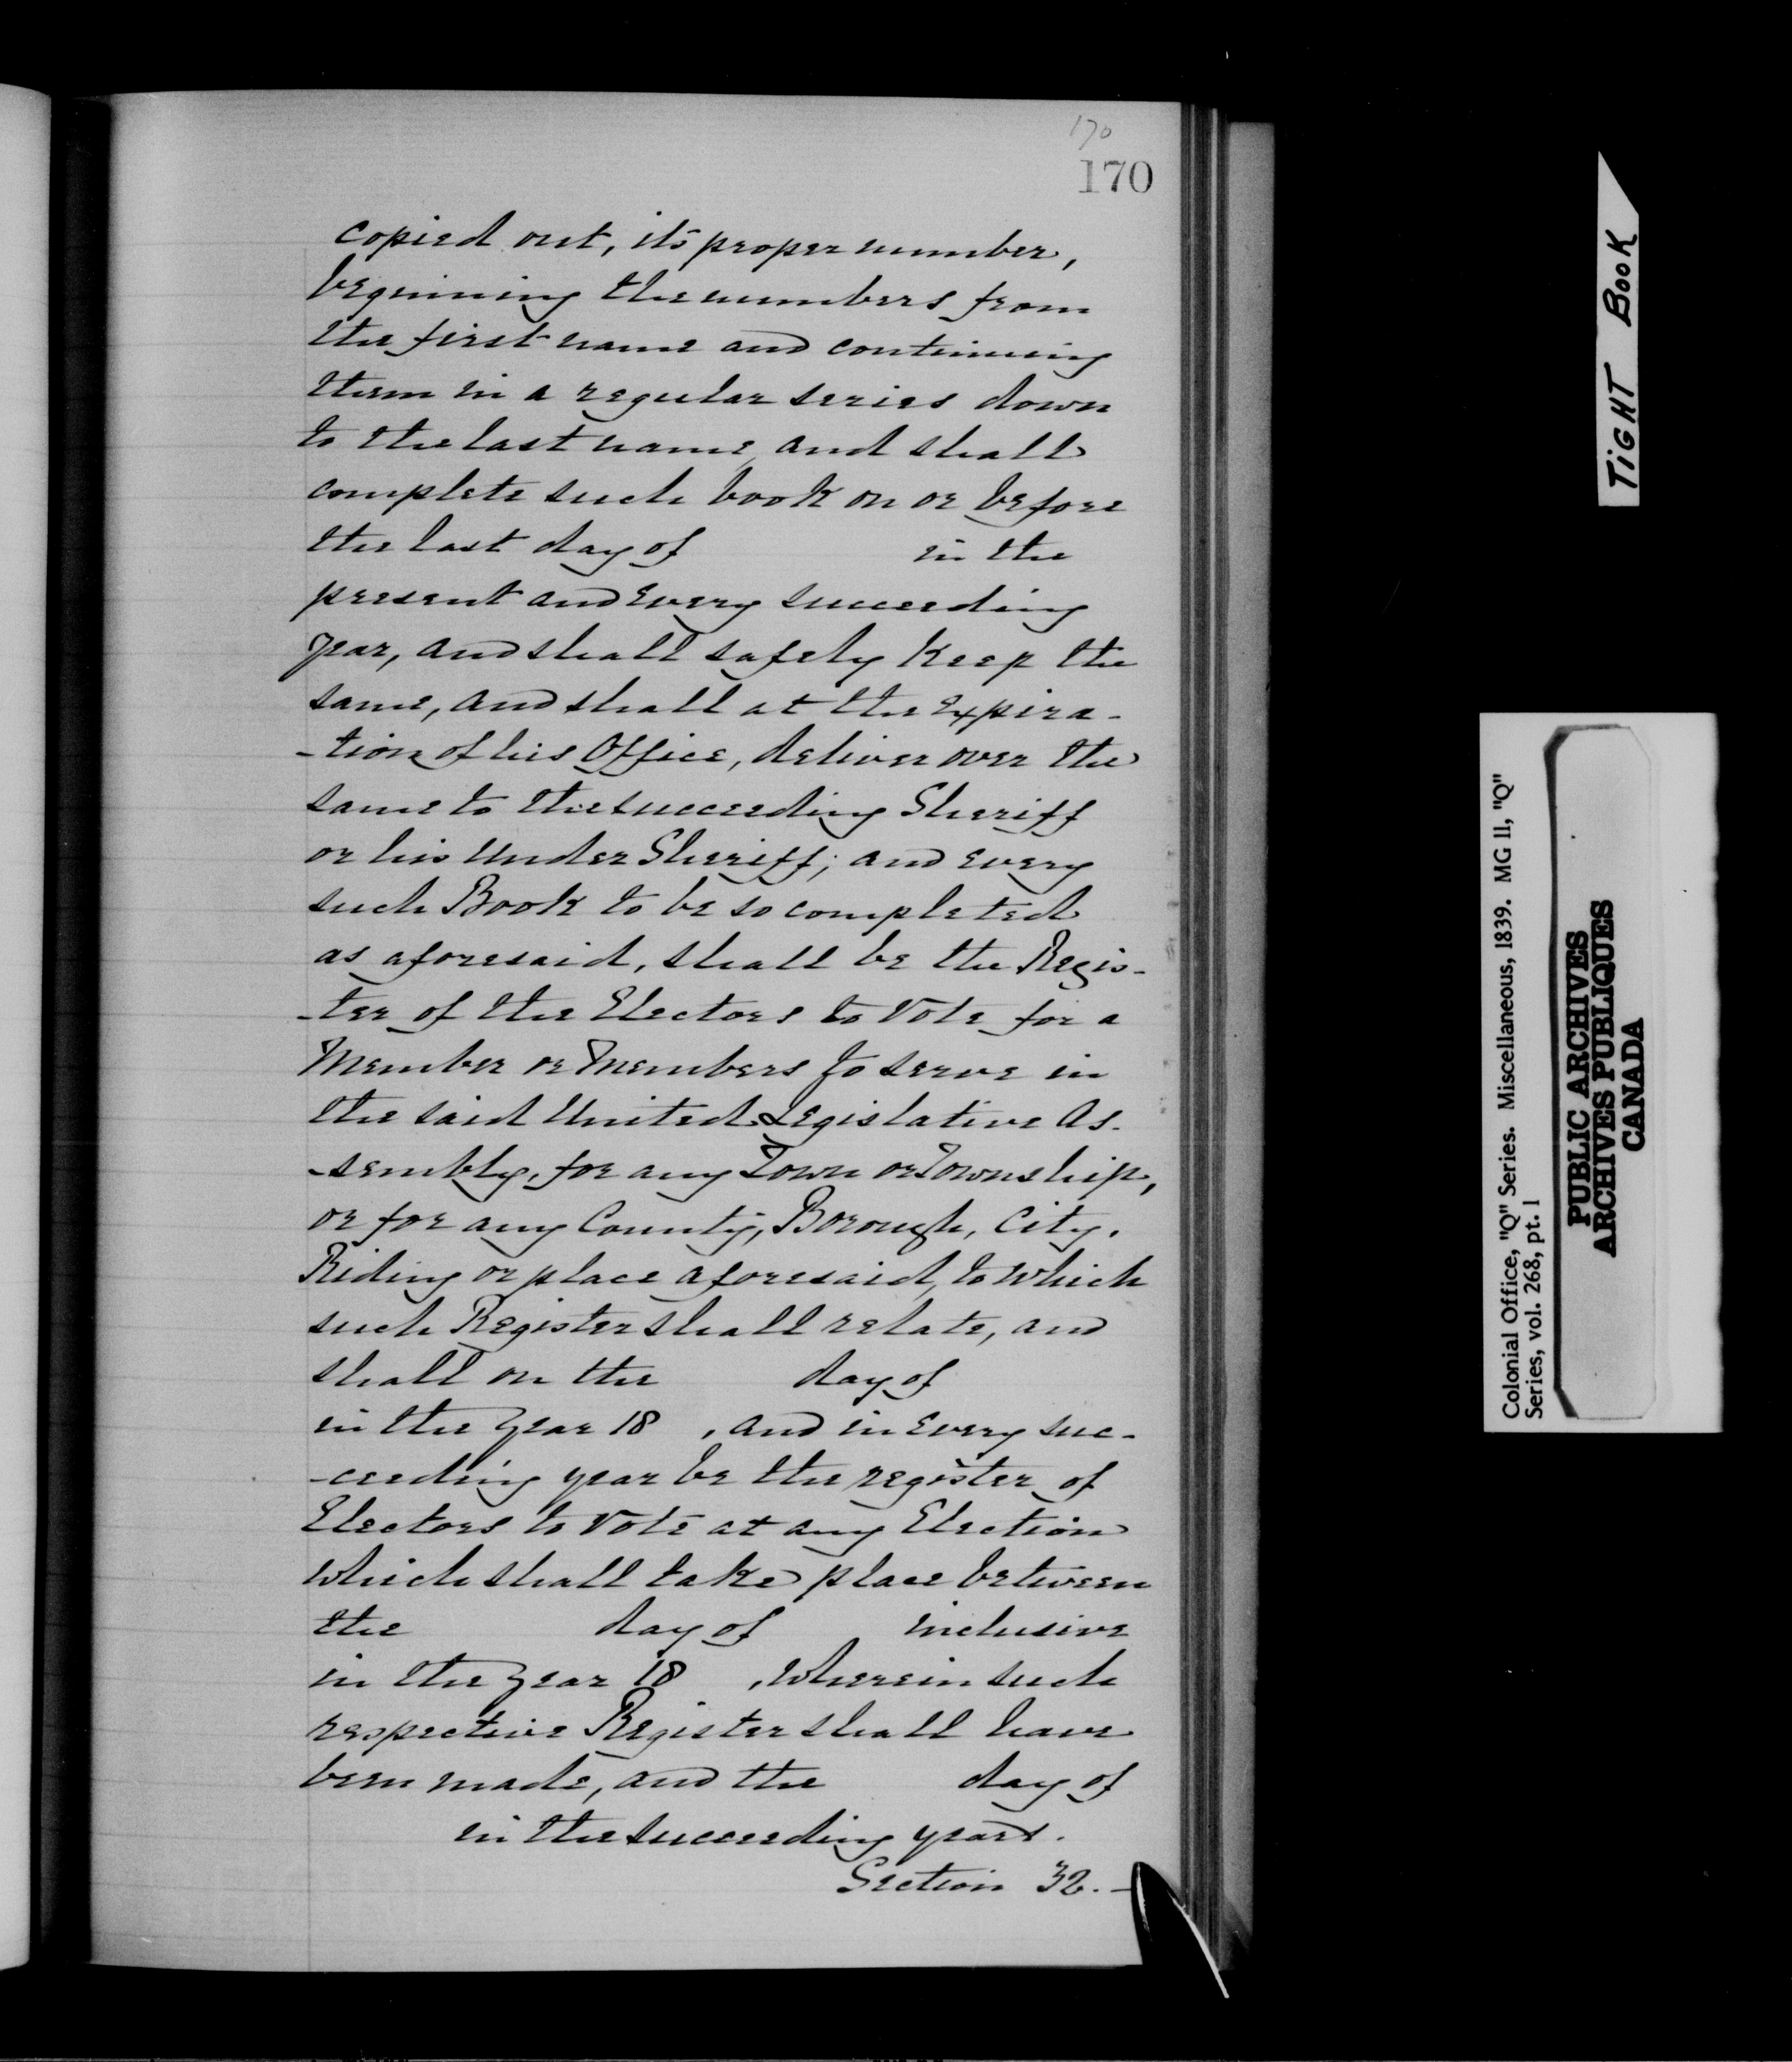 170
170
copied out, its proper number,
beginning the numbers from
the first name and continuing
them in a regular series down
to the last name, and shall
complete such book on or before
the last day of in the
present and every succeeding
year, and shall safely keep the
same, and shall at the expira-
-tion of his Office, deliver over the
same to the succeeding Sheriff
or his Under Sheriff; and every
such Book to be so completed
as aforesaid, shall be the Regis-
-ter of the Electors to Vote for a
Member or Members to serve in
the said United Legislative As-
-sembly, for any Town or Township,
or for any County, Borough, City,
Riding or place aforesaid, to which
such Register shall relate, and
shall on the day of
in the year 18 , and in every suc-
-ceeding year be the register of
Electors to Vote at any Election
which shall take place between
the day of inclusive
in the year 18 , wherein such
respective Register shall have
been made, and the day of
in the succeeding years.
Section 32. -
TIGHT BOOK
Colonial Office, "Q" Series. Miscellaneous, 1839. MG 11, "Q"
Series, vol. 268, pt. 1
PUBLIC ARCHIVES
ARCHIVES PUBLIQUES
CANADA